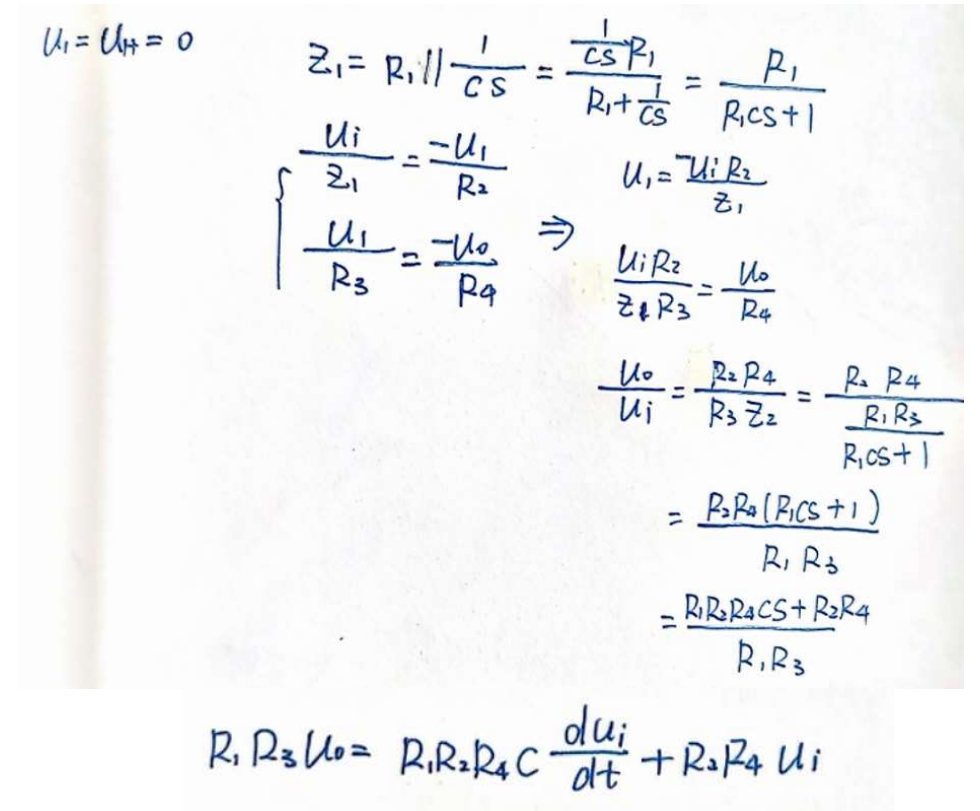 U₁ = U₊₊ = 0
Z₁ = R₁ // 1/CS = (1/CS R₁)/(R₁ + 1/CS) = R₁/(R₁CS + 1)
{ Ui/Z₁ = -U₁/R₂
U₁/R₃ = -U₀/R₄
⇒ U₁ = -UiR₂/Z₁
UiR₂/Z₁R₃ = U₀/R₄
U₀/Ui = R₂R₄/R₃Z₂ = R₂R₄/(R₁R₃/(R₁CS + 1))
= R₂R₄(R₁CS + 1)/R₁R₃
= (R₁R₂R₄CS + R₂R₄)/R₁R₃
R₁R₃U₀ = R₁R₂R₄C dui/dt + R₂R₄Ui